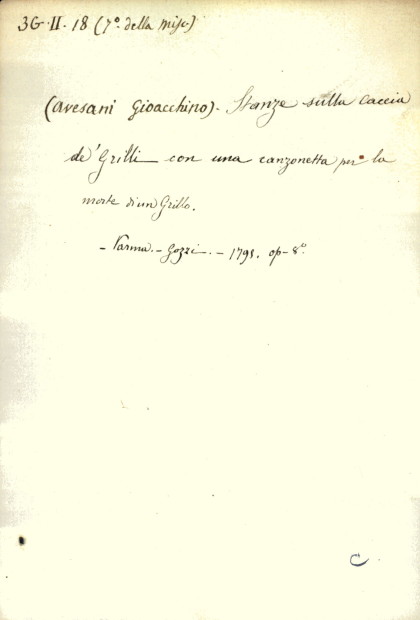 3G·II·18 (7º della Misc)
(Avesani Gioacchino). Stanze sulla Caccia
de' Grilli con una canzonetta per la
morte di un Grillo.
- Parma. - Gozzi. - 1795. op- 8º.
C